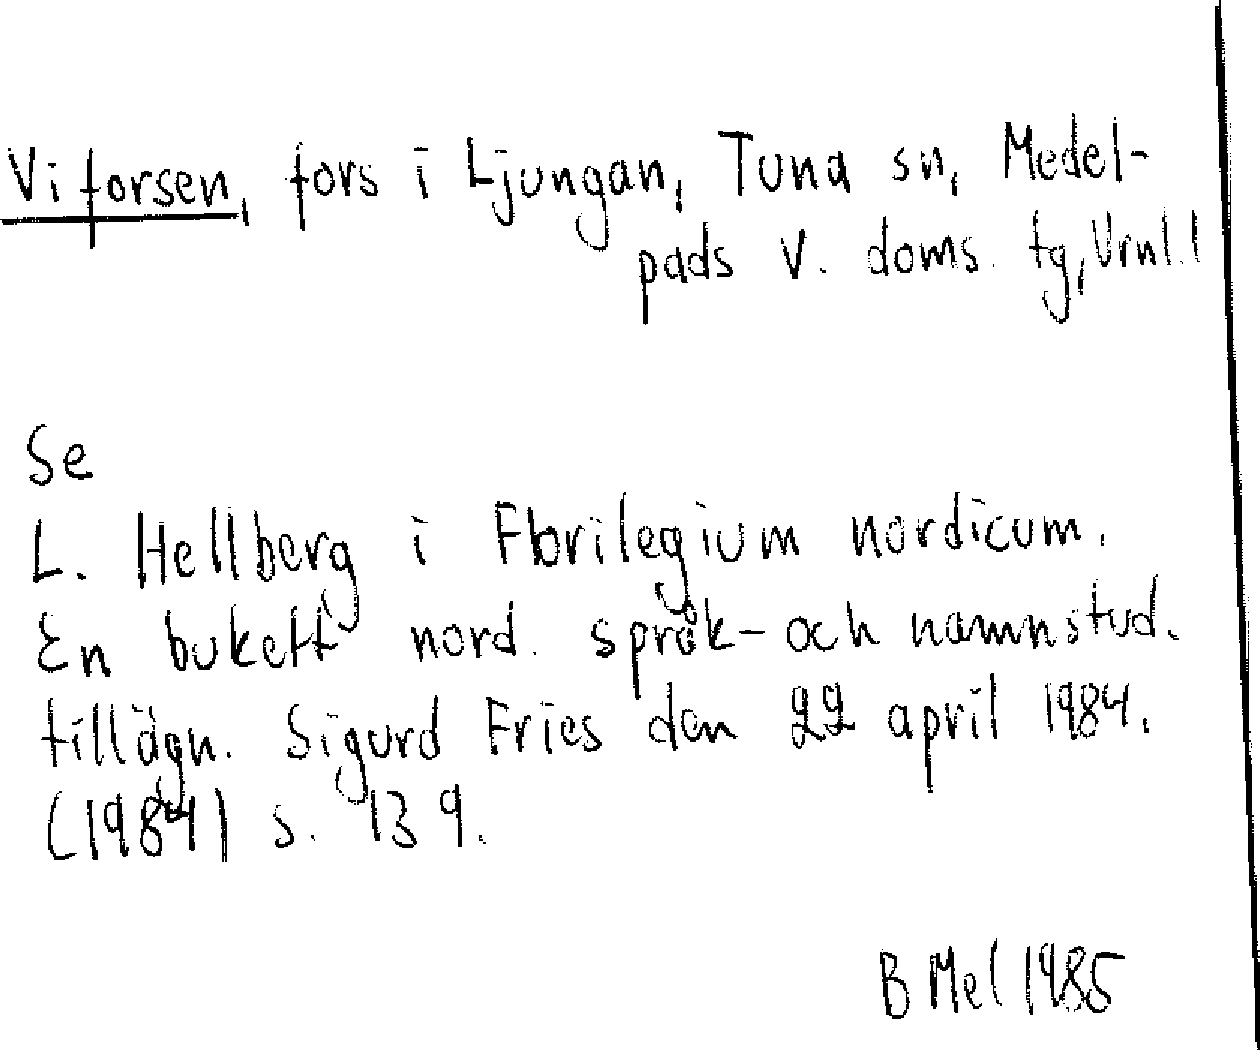 Viforsen, fors i Ljungan, Tuna sn, Medel-
pads V. doms. tg, Vrnl. l
Se
L. Hellberg i Florilegium nordicum.
En bukett nord. språk- och namnstud.
tillägn. Sigurd Fries den 22 april 1984.
(1984) s. 139.
B Mel 1985